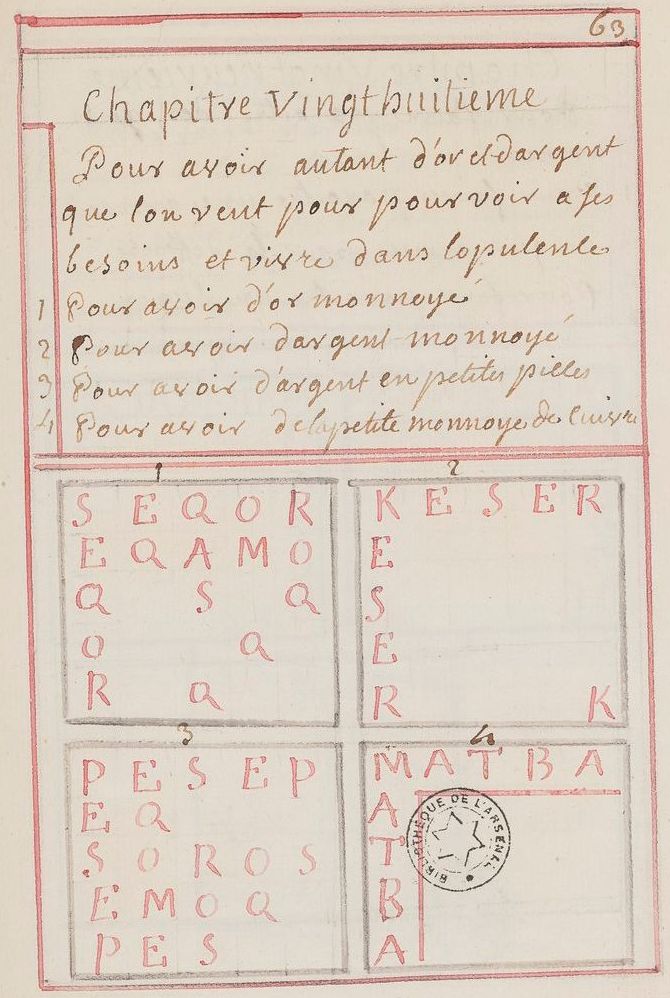 63
Chapitre vingthuitieme
Pour avoir autant d'or et d'argent
que lon veut pour pourvoir a ses
besoins et vivre dans lopulence
1 Pour avoir d'or monnoyé
2 Pour avoir dargent monnoyé
3 Pour avoir d'argent en petites pieces
4 Pour avoir de la petite monnoye de cuivre
1
S E Q O R
E Q A M O
Q S Q
O Q
R Q
2
K E S E R
E
S
E
R K
3
P E S E P
E Q
S O R O S
E M O Q
P E S
4
M A T B A
A
T
B
A
BIBLIOTHÈQUE DE L'ARSENAL